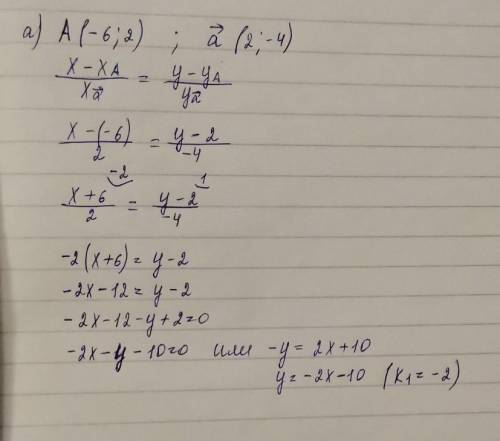 а) A(-6; 2) ; a⃗ (2; -4)
(x - xA)/xa⃗ = (y - yA)/ya⃗
(x - (-6))/2 = (y - 2)/-4
-2 1
(x + 6)/2 = (y - 2)/-4
-2(x+6) = y - 2
-2x - 12 = y - 2
-2x - 12 - y + 2 = 0
-2x - y - 10 = 0 или -y = 2x + 10
y = -2x - 10 (K₁ = -2)